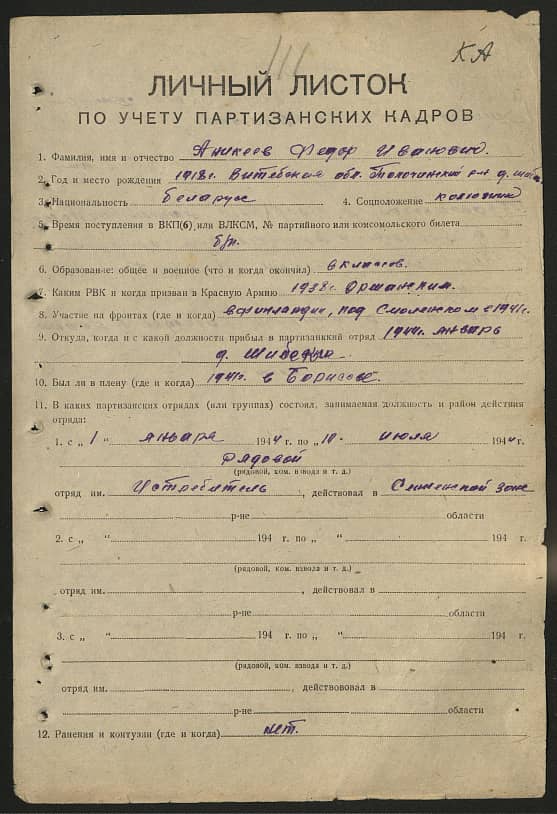 КА
ЛИЧНЫЙ ЛИСТОК
ПО УЧЕТУ ПАРТИЗАНСКИХ КАДРОВ
1. Фамилия, имя и отчество Аникеев Федор Иванович.
2. Год и место рождения 1918г. Витебская обл. Толочинский р-н д.
3. Национальность беларус 4. Соцположение колхозник
5. Время поступления в ВКП(б) или ВЛКСМ, № партийного или комсомольского билета
б/п.
6. Образование: общее и военное (что и когда окончил) 6 классов.
7. Каким РВК и когда призван в Красную Армию 1938г. Оршанским.
8. Участие на фронтах (где и когда) в финляндие, под Смоленском в 1941г.
9. Откуда, когда и с какой должности прибыл в партизанский отряд 1944г. январь
д.
10. Был ли в плену (где и когда) 1941г. в Борисове.
11. В каких партизанских отрядах (или группах) состоял, занимаемая должность и район действия
отряда:
1. с „ 1 “ января 1944 г. по „ 10 “ июля 1944 г.
Рядовой
(рядовой, ком. взвода и т. д.)
отряд им. Истребитель, действовал в Сенненской зоне
р-не области
2. с „ “ 194 г. по „ “ 194 г.
(рядовой, ком. взвода и т. д.)
отряд им. , действовал в
р-не области
3. с „ “ 194 г. по „ “ 194 г.
(рядовой, ком. взвода и т. д.)
отряд им. , действововал в
р-не области
12. Ранения и контузии (где и когда) нет.